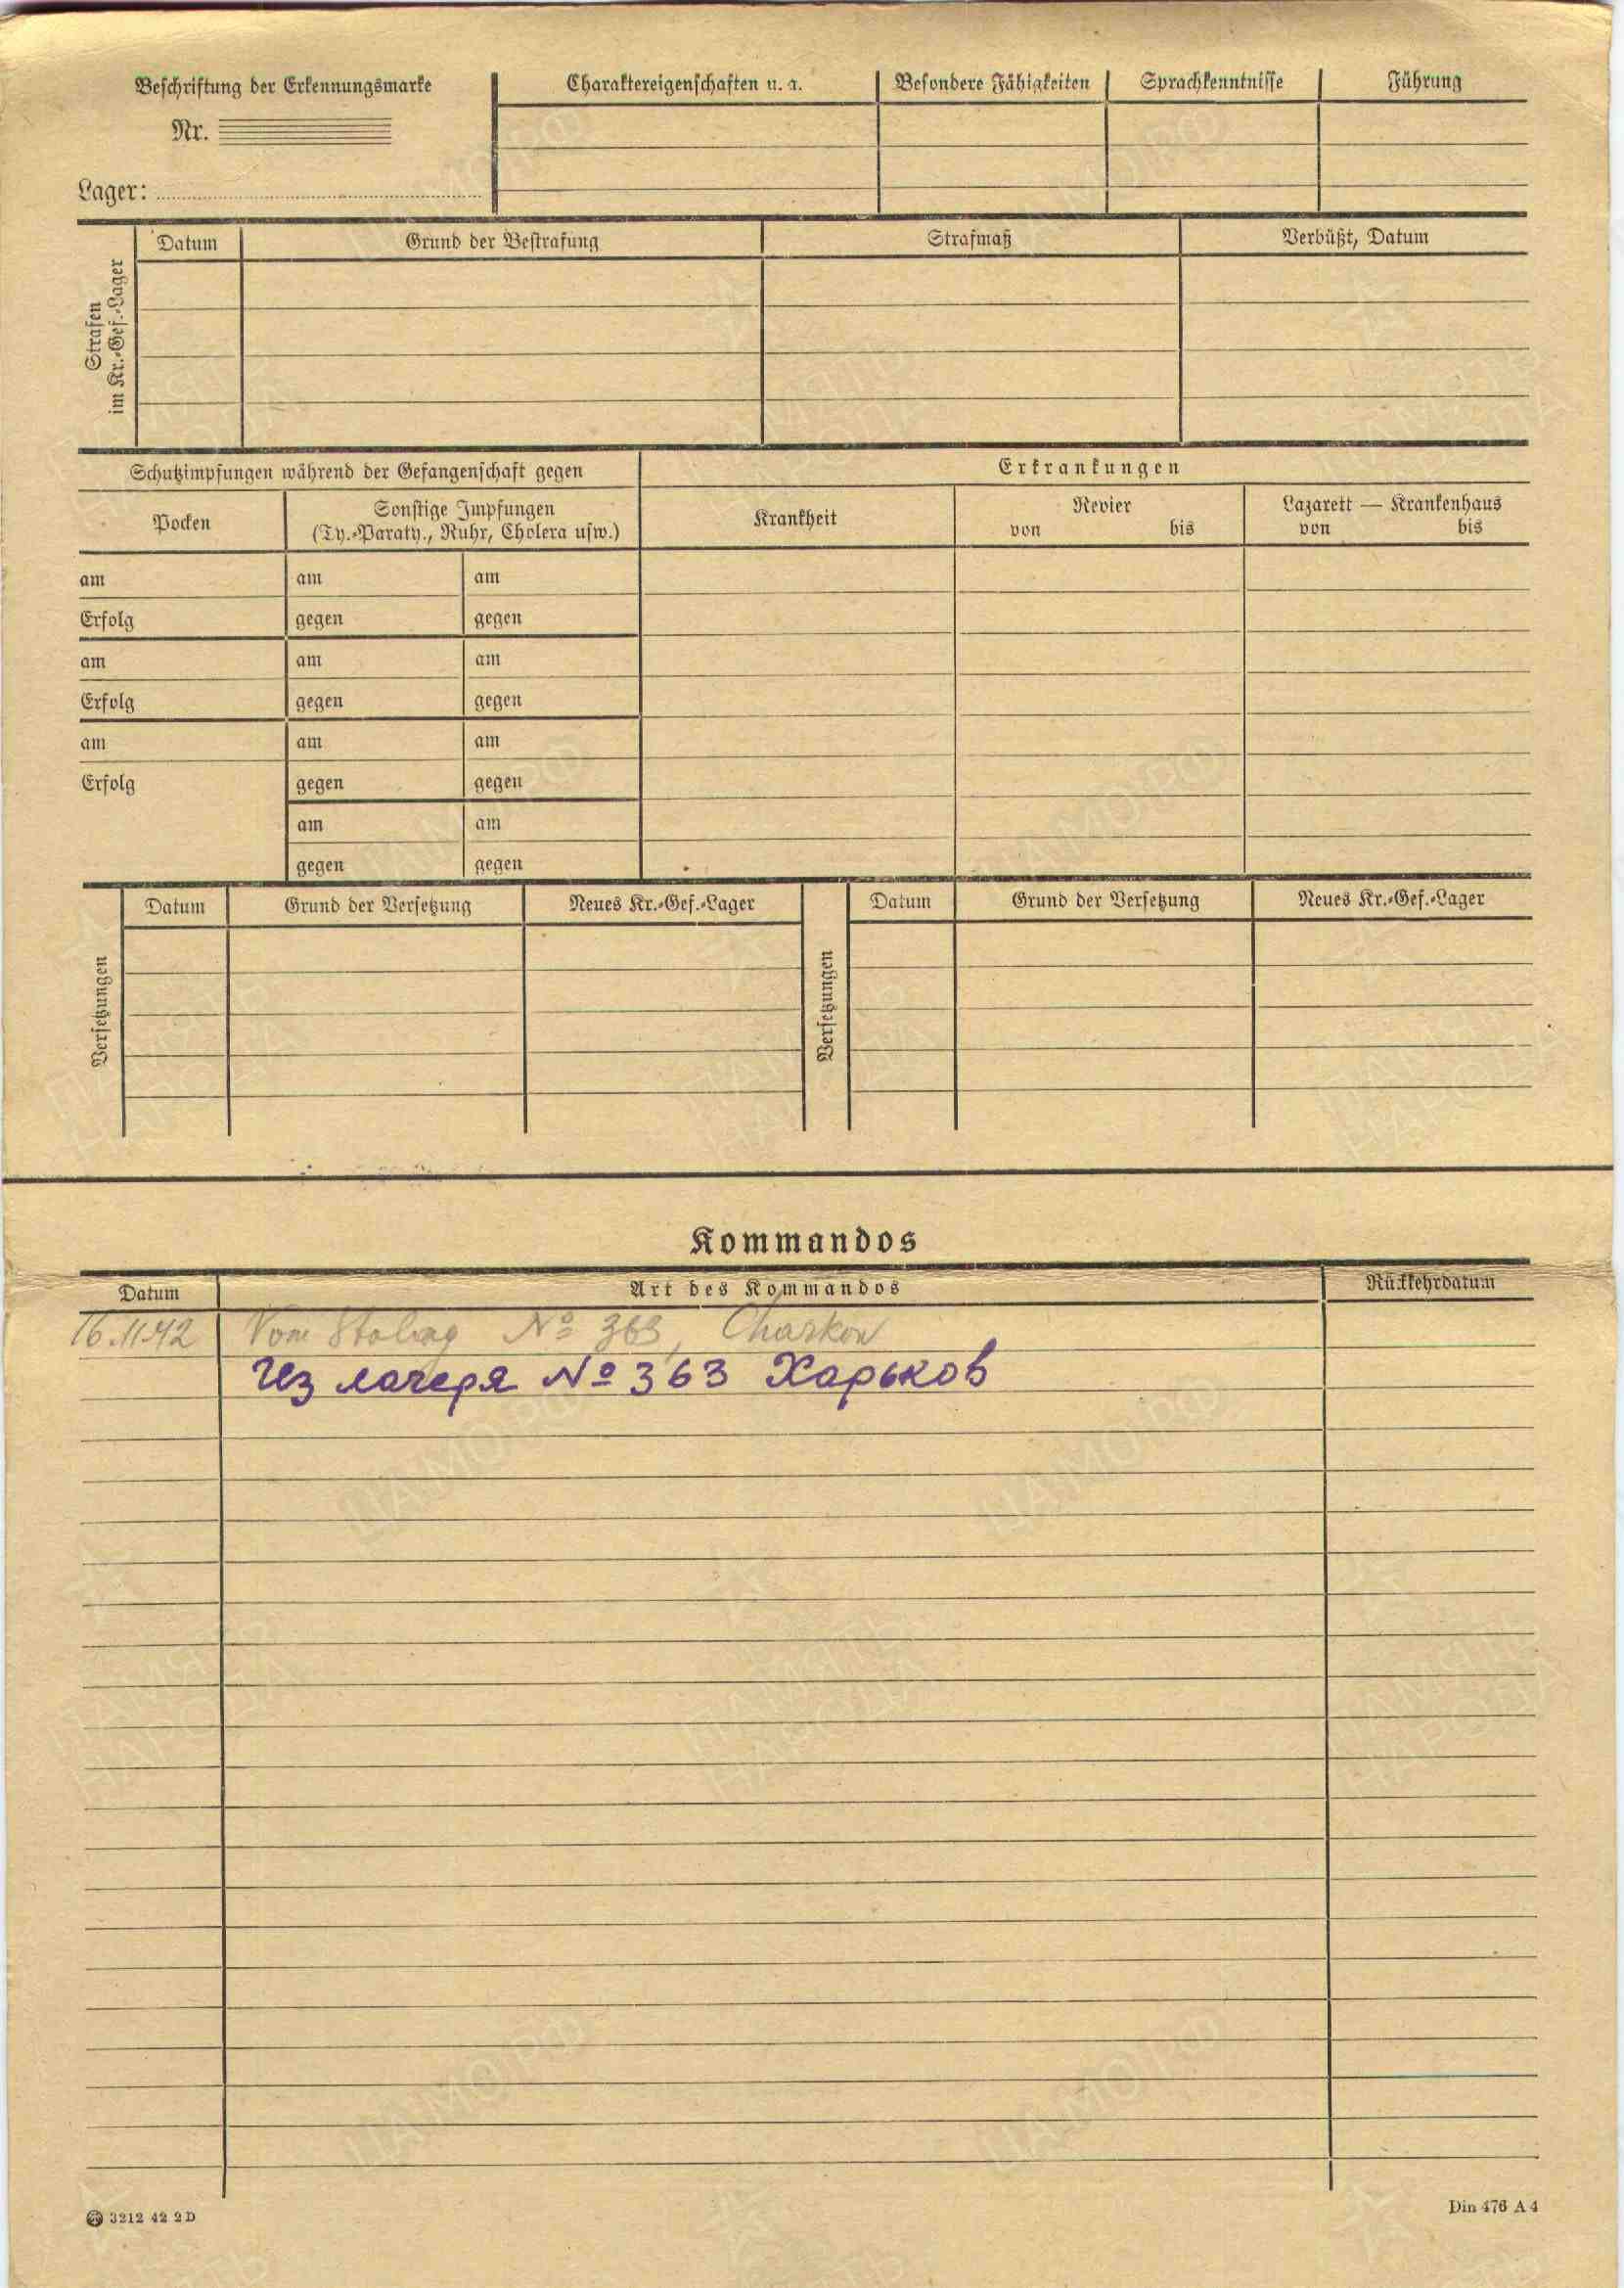 Beschriftung der Erkennungsmarke
Nr.
Lager:
Charaktereigenschaften u. a.
Besondere Fähigkeiten
Sprachkenntnisse
Führung
Strafen
im Kr.-Gef.-Lager
Datum
Grund der Bestrafung
Strafmaß
Verbüßt, Datum
Schutzimpfungen während der Gefangenschaft gegen
Erkrankungen
Pocken
Sonstige Impfungen
(Ty.-Paraty., Ruhr, Cholera usw.)
Krankheit
Revier
von bis
Lazarett — Krankenhaus
von bis
am am am
Erfolg gegen gegen
am am am
Erfolg gegen gegen
am am am
Erfolg gegen gegen
am am
gegen gegen
Versetzungen
Datum
Grund der Versetzung
Neues Kr.-Gef.-Lager
Versetzungen
Datum
Grund der Versetzung
Neues Kr.-Gef.-Lager
Kommandos
Datum
Art des Kommandos
Rückkehrdatum
16.11.42 Vom Stalag № 363, Charkow
Из лагеря № 363 Харьков
3212 42 2 D
Din 476 A 4
ЦАМО.РФ
ПАМЯТЬ
НАРОДА